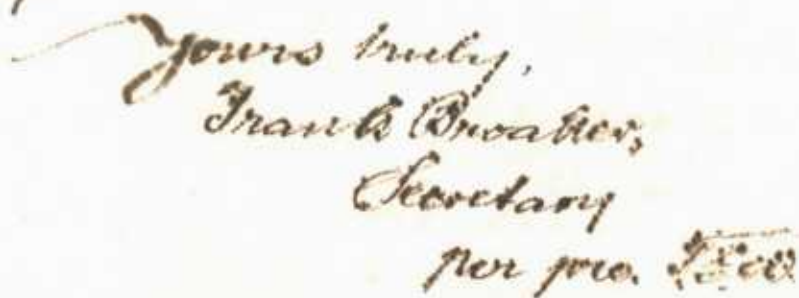 Yours truly,
Frank
Secretary
per pro.